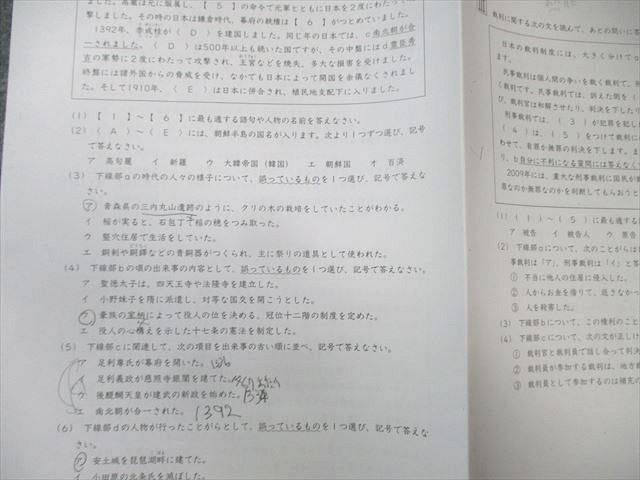 撃しました。その時の日本は鎌倉時代、幕府の執権は【 6 】がつとめていました。
1392年、李成桂が（ D ）を建国しました。同じ年の日本では、c南北朝が合
一されました。（ D ）は500年以上も続いた国ですが、その中盤にはd豊臣秀
吉の軍勢に2度にわたって攻撃され、王宮などを焼失、多大な損害を受けました。
終盤には諸外国からの脅威を受け、なかでも日本によって開国を余儀なくされまし
た。そして1910年、（ E ）は日本に併合され、植民地支配下に入りました。
(1) 【 1 】～【 6 】に最も適する語句や人物の名前を答えなさい。
(2) （ A ）～（ E ）には、朝鮮半島の国名が入ります。次より1つずつ選び、記号
で答えなさい。
ア 高句麗 イ 新羅 ウ 大韓帝国（韓国） エ 朝鮮国 オ 百済
(3) 下線部aの時代の人々の様子について、誤っているものを1つ選び、記号で答えなさ
い。
ア 青森県の三内丸山遺跡のように、クリの木の栽培をしていたことがわかる。
イ 稲が実ると、石包丁で稲の穂をつみ取った。
ウ 竪穴住居で生活をしていた。
エ 銅剣や銅鐸などの青銅器がつくられ、主に祭りの道具として使われた。
(4) 下線部bの頃の出来事の内容として、誤っているものを1つ選び、記号で答えなさい。
ア 聖徳太子は、四天王寺や法隆寺を建立した。
イ 小野妹子を隋に派遣し、対等な国交を開こうとした。
ウ 豪族の家柄によって役人の位を決める、冠位十二階の制度を定めた。
エ 役人の心構えを示した十七条の憲法を制定した。
(5) 下線部cに関連して、次の項目を出来事の古い順に並べ、記号で答えなさい。
ア 足利尊氏が幕府を開いた。
イ 足利義政が慈照寺銀閣を建てた。
ウ 後醍醐天皇が建武の新政を始めた。
エ 南北朝が合一された。 1392
(6) 下線部dの人物が行ったことがらとして、誤っているものを1つ選び、記号で答えな
さい。
ア 安土城を琵琶湖畔に建てた。
イ 小田原の北条氏を滅ぼした。
裁判に関する次の文を読んで、あとの問いに答
日本の裁判制度には、大きく分けて
民事裁判は個人間の争いを裁く裁判で、
く裁判です。民事裁判では、訴えた側を（
び、裁判官は和解させたり、判決を下したり
刑事裁判では、（ 3 ）が犯罪を犯した
（ 4 ）は、（ 5 ）をつけて裁判に
わせて、有罪か無罪の判決を下します。ま
り、b自分に不利になる質問には答えなく
2009年には、重大な刑事裁判に国民が
罪なのか無罪なのかを判断してもらおうと
(1) （ 1 ）～（ 5 ）に最も適する
ア 被告 イ 被告人 ウ 原告
(2) 下線部aについて、次のことがらは
事裁判は「ア」、刑事裁判は「イ」と答
① 不当に他人の住居に侵入した。
② 人からお金を借りて、返さなかっ
③ 人を殺害した。
(3) 下線部bについて、この権利のこと
(4) 下線部cについて、次の文が正しけ
① 裁判官と裁判員で話し合って判決
② 裁判員が参加する裁判は、地方裁
③ 裁判員として参加するのは補充の